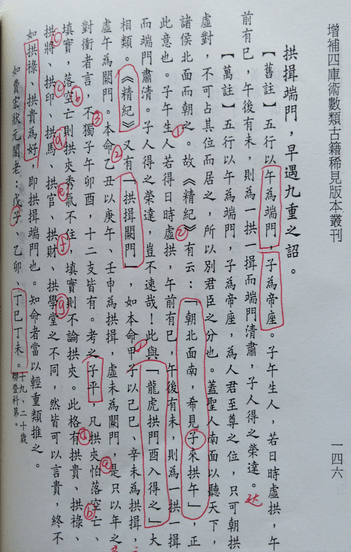 增補四庫術數類古籍稀見版本叢刊
一四六
拱揖端門，早遇九重之詔。
【舊註】五行以午為端門，子為帝座。子午生人，若日時虛拱，午
前有巳，午後有未，則為一拱一揖而端門清肅，子人得之榮達。
【萬註】五行以午為端門，子為帝座，為人君至尊之位，只可朝拱
虛對，不可占其位而居之，所以別君臣之分也。蓋聖人南面以聽天下，
諸侯北面而朝之。故《精紀》有云：「朝北面南，希見子來拱午」，正
此意也。子午生人若得日時虛拱，午前有巳，午後有未，則為一拱一揖
而端門肅清。子人得之榮達，豈不遠哉！此與「龍虎拱門酉入得之」大
相類。《精紀》又有「拱揖闕門」，如本命甲子以己巳、辛未為拱揖，
虛午為闕門，本命乙丑以庚午、壬申為拱揖，虛未為闕門，是只以年之
對衝者言，不獨子午卯酉，十二支皆有。考之子平，凡拱夾怕落空亡、
填實，落空亡則拱夾秀氣不住，填實則不論拱夾。此格有拱貴、拱祿、
拱將、拱印、拱馬、拱官、拱財、拱學堂之不同，然皆可以言貴，終不
如拱祿、拱貴為好，即拱揖端門也。知命者當以輕重類推之。
如賈宏狀元閣老：戊子、乙卯、丁巳丁未。